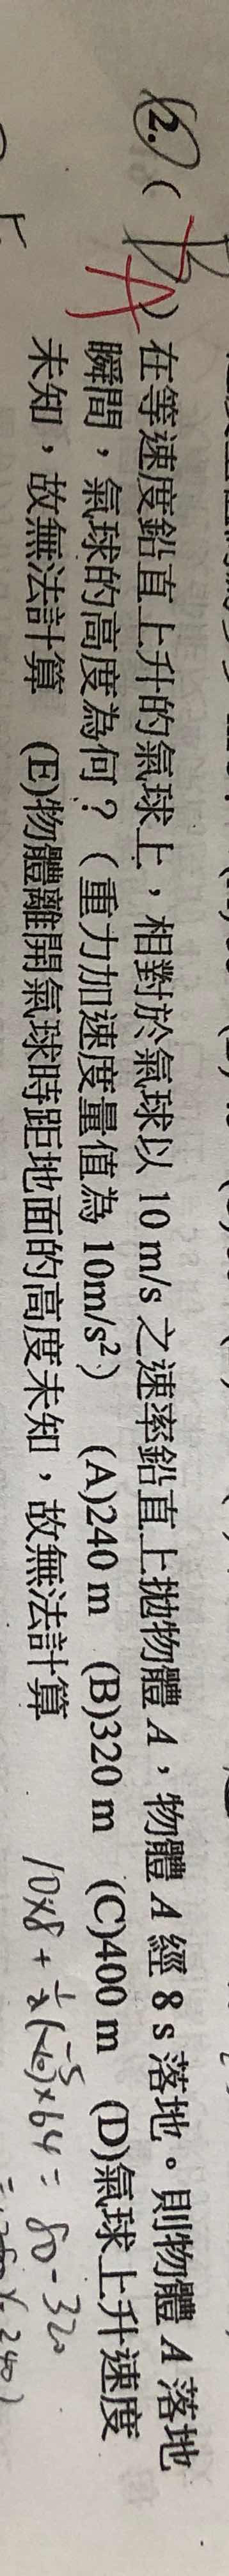 12. ( B A ) 在等速度鉛直上升的氣球上，相對於氣球以 10 m/s 之速率鉛直上拋物體 A，物體 A 經 8 s 落地。則物體 A 落地
瞬間，氣球的高度為何？（重力加速度量值為 10m/s²） (A)240 m (B)320 m (C)400 m (D)氣球上升速度
未知，故無法計算 (E)物體離開氣球時距地面的高度未知，故無法計算
10×8 + ½(-10)×64 = 80 - 320